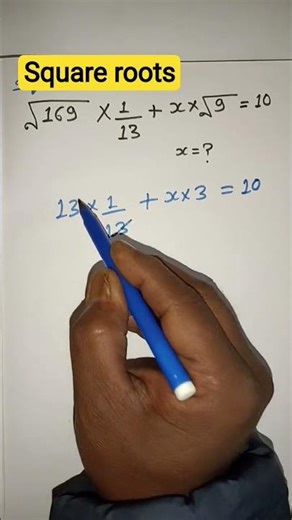 Square roots
√169 × 1/13 + x × √9 = 10
x = ?
13 × 1/13 + x × 3 = 10